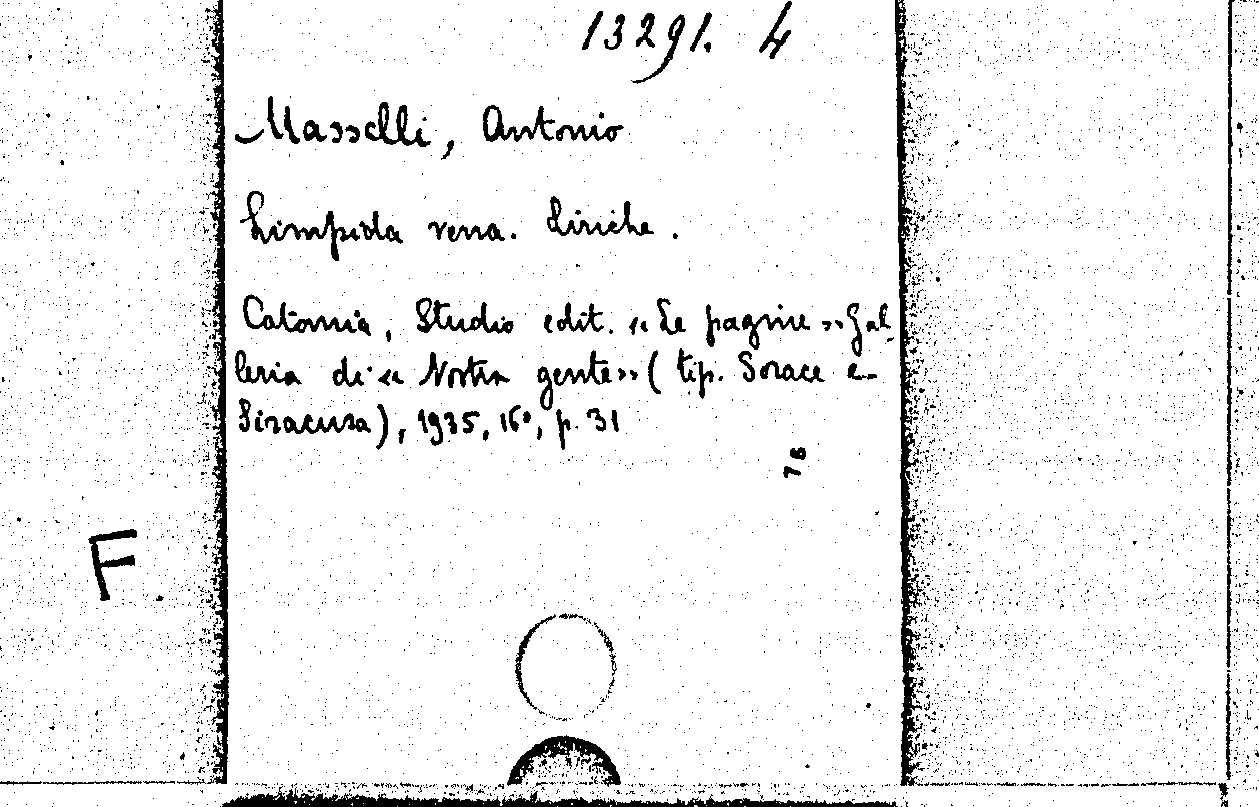 13291. 4
Masselli, Antonio
Limpida vena. Liriche.
Catania, Studio edit. «Le pagine» Gal-
leria di «Nostra gente» (tip. Sorace e
Siracusa), 1935, 16°, p. 31
78
F